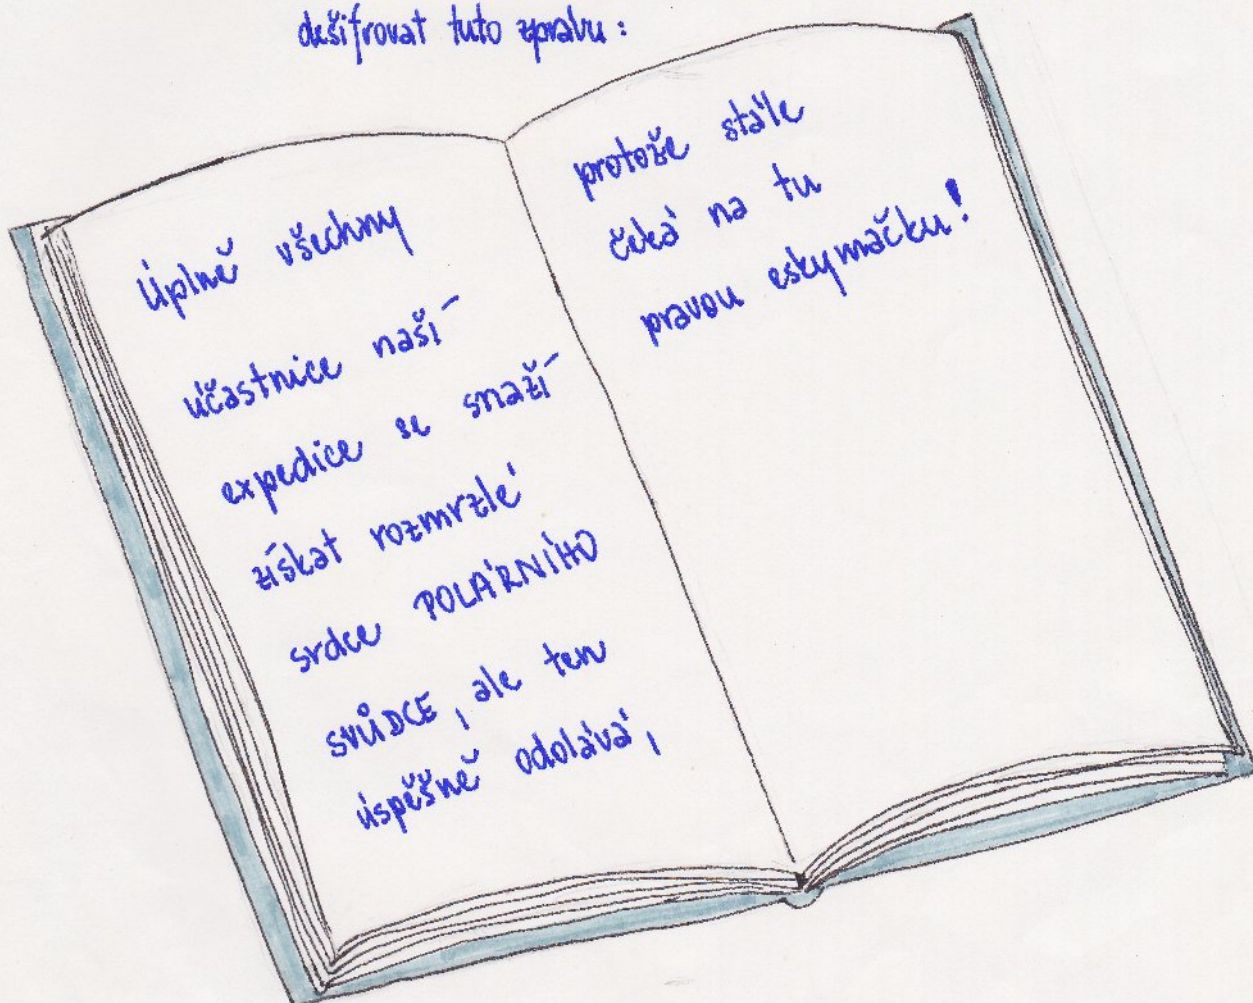 dešifrovat tuto zprávu:
Úplně všechny
účastnice naší
expedice se snaží
získat rozmrzlé
srdce POLÁRNÍHO
SVŮDCE, ale ten
úspěšně odolává,
protože stále
čeká na tu
pravou eskymačku!